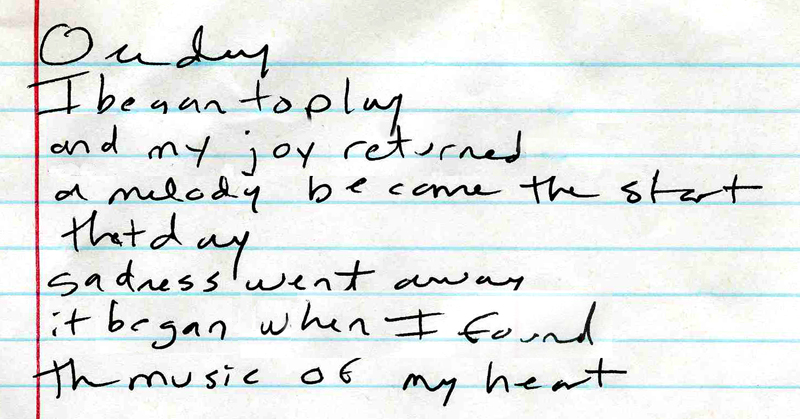 One day
I began to play
and my joy returned
a melody became the start
that day
sadness went away
it began when I found
the music of my heart